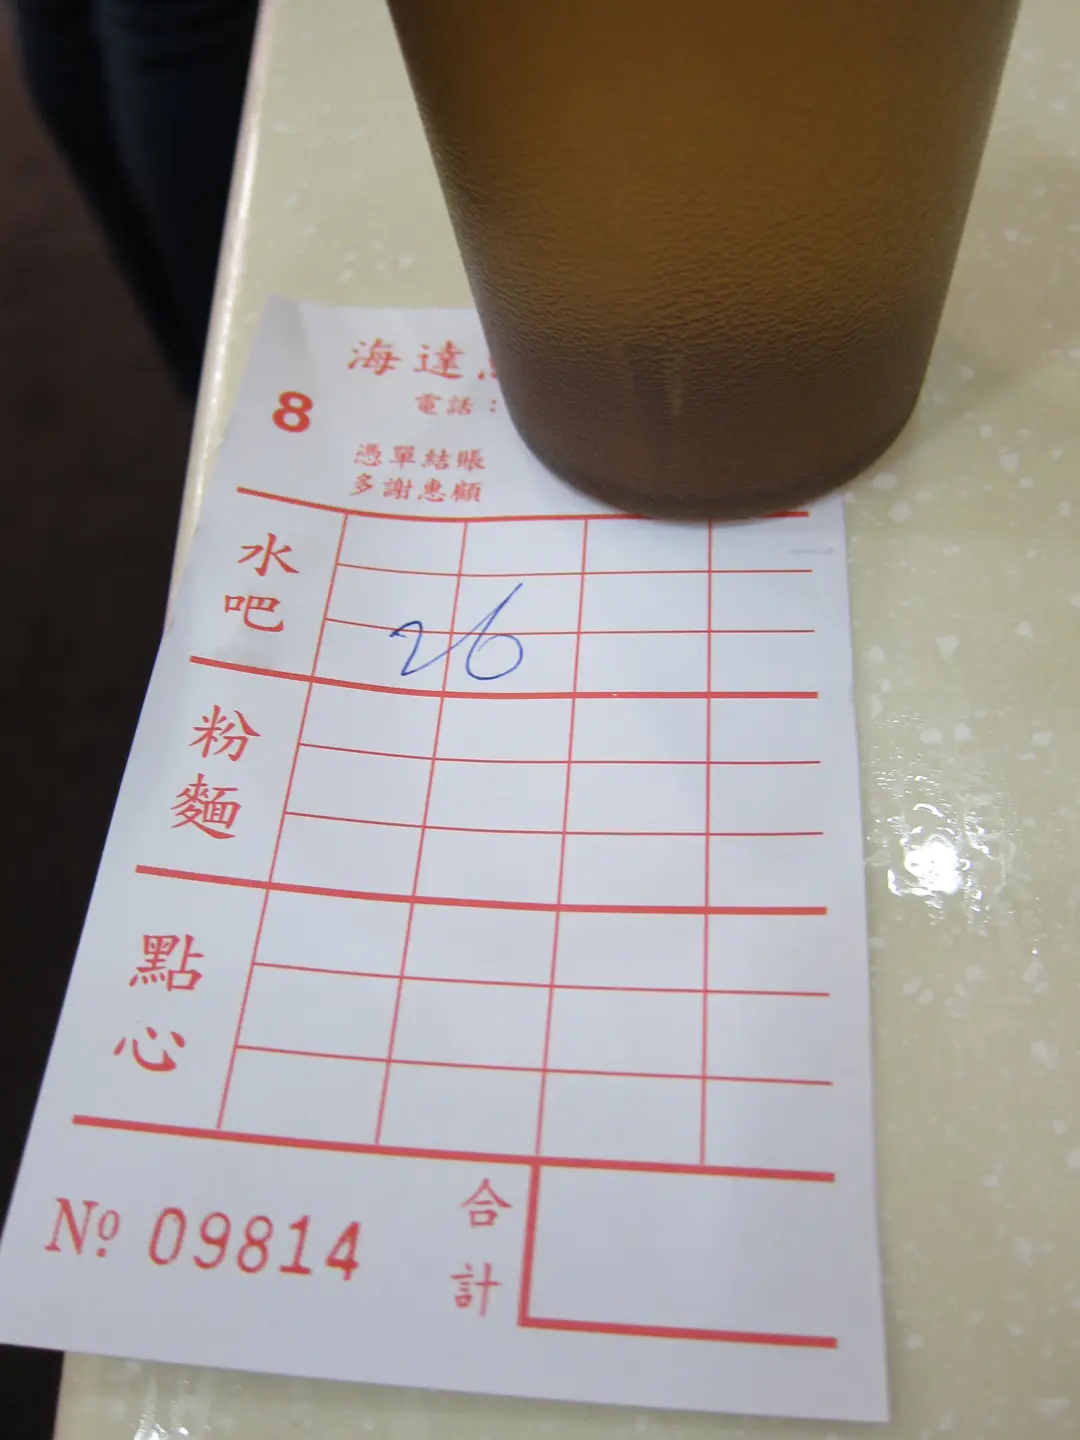 海達
電話：
8
憑單結賬
多謝惠顧
水吧
26
粉麵
點心
合計
Nº 09814